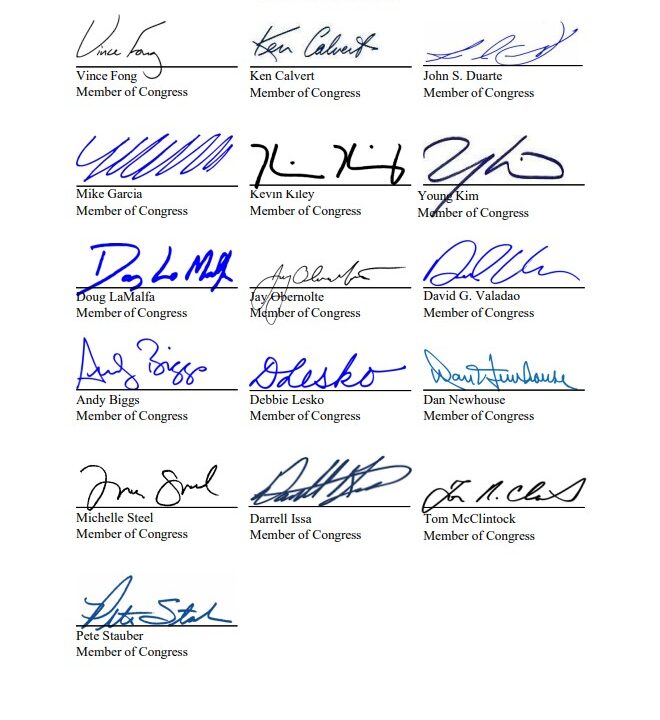 Vince Fong Ken Calvert
Vince Fong Ken Calvert John S. Duarte
Member of Congress Member of Congress Member of Congress
Kevin Kiley
Mike Garcia Kevin Kiley Young Kim
Member of Congress Member of Congress Member of Congress
Doug LaMalfa Jay Obernolte
Doug LaMalfa Jay Obernolte David G. Valadao
Member of Congress Member of Congress Member of Congress
Andy Biggs DLesko Dan Newhouse
Andy Biggs Debbie Lesko Dan Newhouse
Member of Congress Member of Congress Member of Congress
Michelle Steel Darrell Issa Tom McClintock
Member of Congress Member of Congress Member of Congress
Pete Stauber
Member of Congress